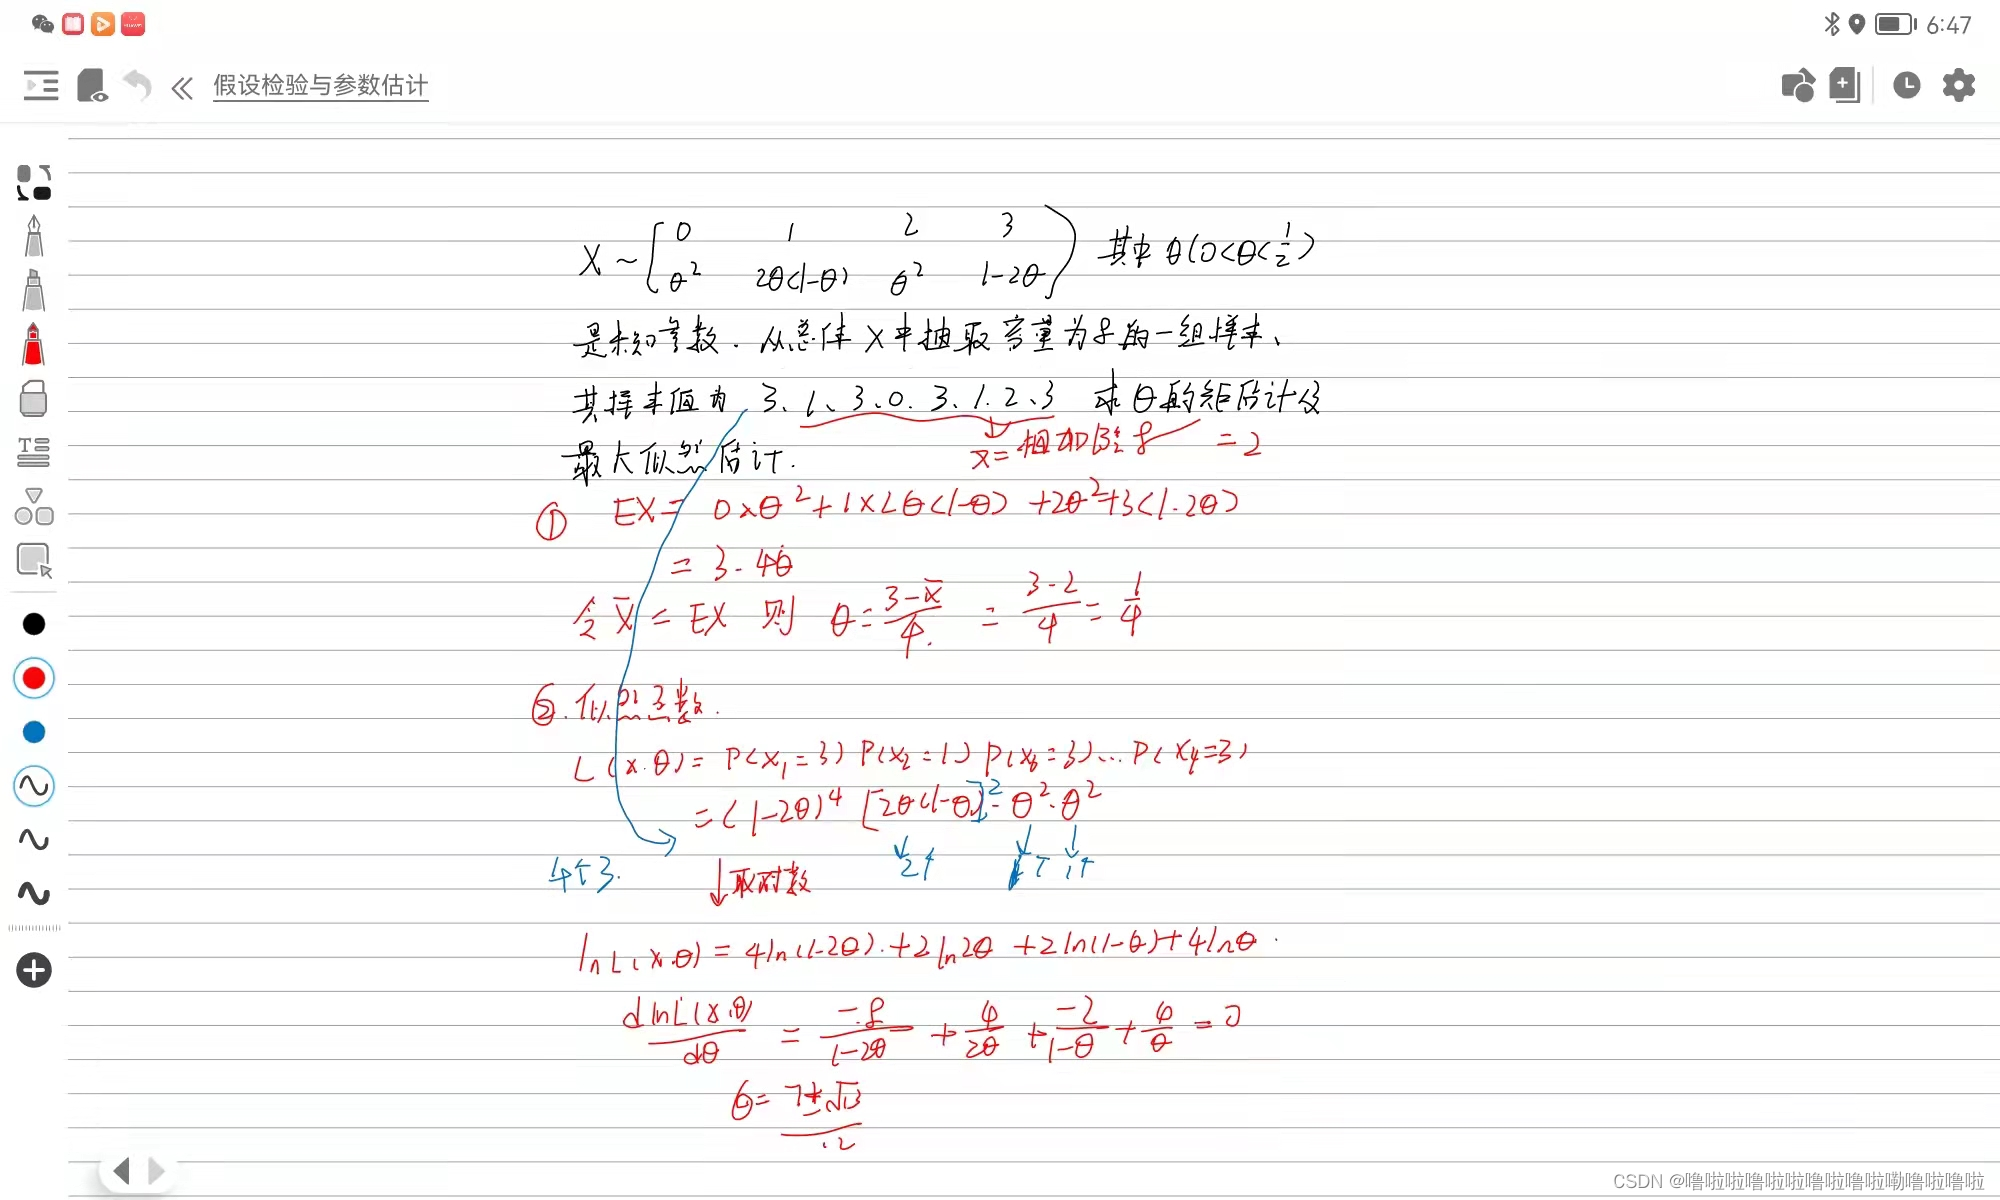 6:47
假设检验与参数估计
X ~ [ 0 1 2 3
θ² 2θ(1-θ) θ² 1-2θ ) 其中 θ(0<θ<1/2)
是未知参数. 从总体 X 中抽取容量为8的一组样本、
其样本值为 3、1、3.0.3、1.2、3 求θ的矩估计及
最大似然估计.
x̄= 相加除8 = 2
① EX = 0×θ²+1×2θ(1-θ) +2θ²+3(1-2θ)
= 3-4θ
令 X̄ = EX 则 θ = (3-x̄)/4. = (3-2)/4 = 1/4
②.似然函数.
L(x.θ) = P(X₁=3) P(X₂=1) P(X₃=3)...P(X₈=3)
=(1-2θ)⁴ [2θ(1-θ)]²·θ²·θ²
4个3. ↓取对数 2个 1个 1个
lnL(x.θ) = 4ln(1-2θ).+2ln2θ +2ln(1-θ)+4lnθ
dlnL(x.θ)/dθ = -8/(1-2θ) + 4/2θ + -2/(1-θ) + 4/θ = 0
θ= (7±√13)/12
T
CSDN @噜啦啦噜啦啦噜啦噜啦嘞噜啦噜啦